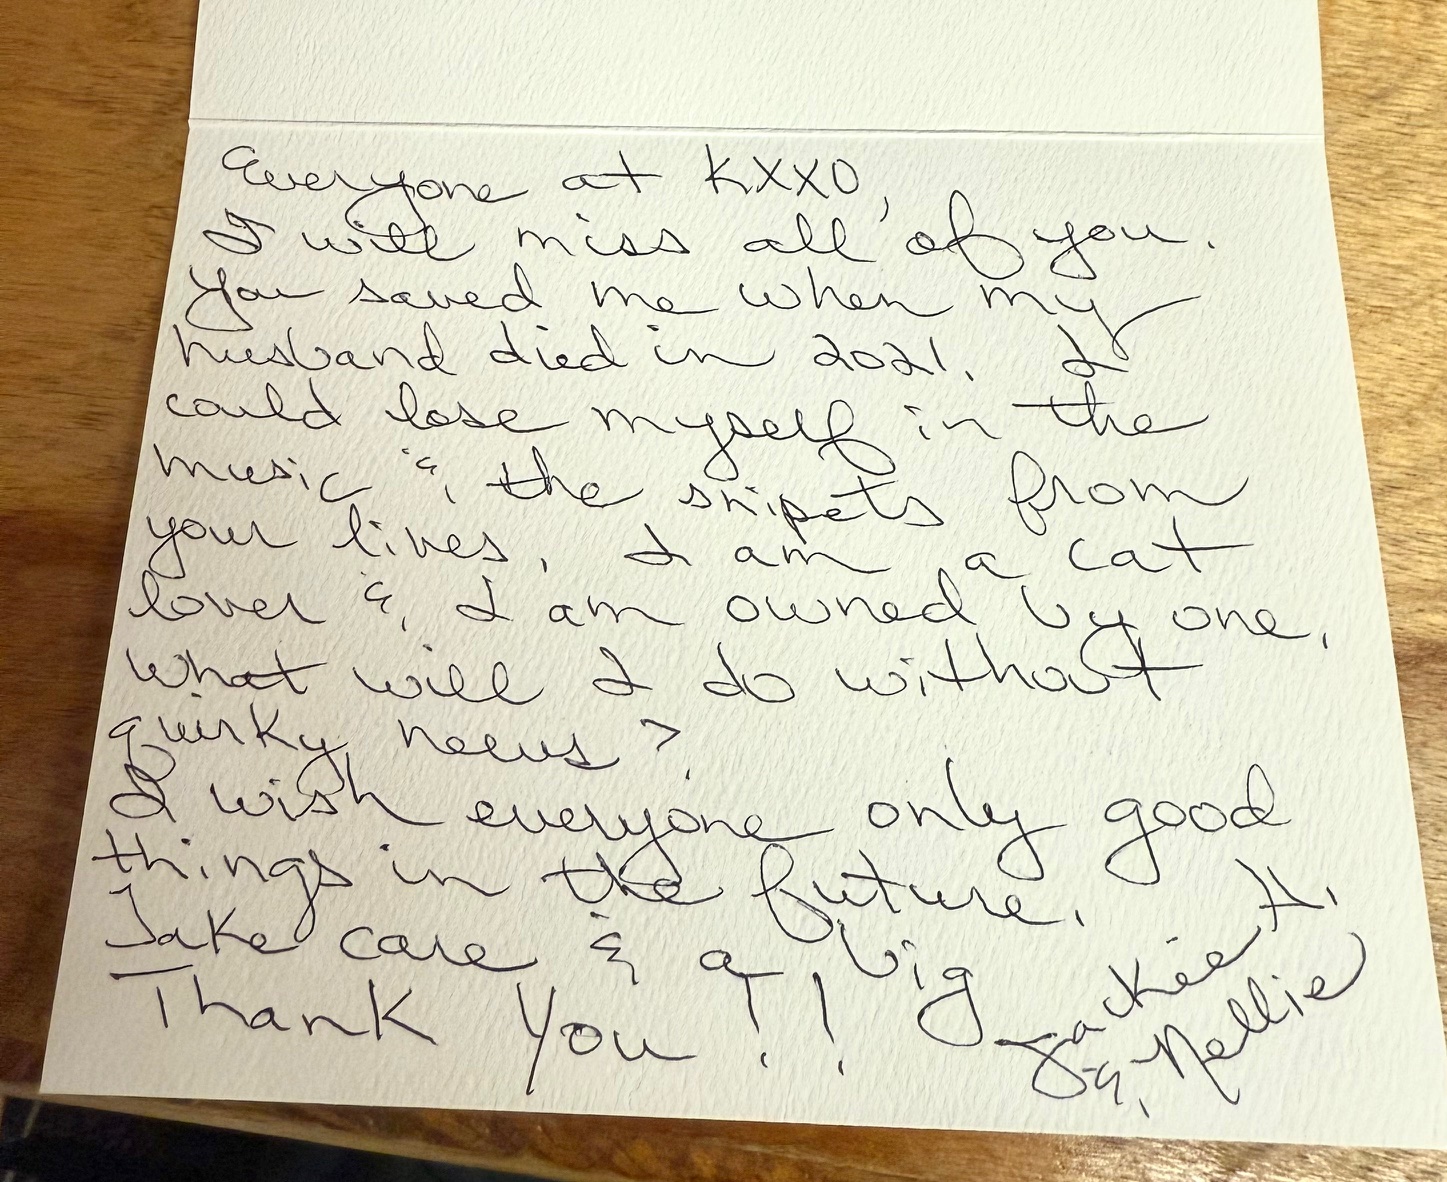 Everyone at KXXO,
I will miss all of you.
You saved me when my
husband died in 2021. I
could lose myself in the
music & the snipets from
your lives. I am a cat
lover & I am owned by one.
What will I do without
quirky news?
I wish everyone only good
things in the future.
Take care & a big
Thank You!!
Jackie H.
& Nellie